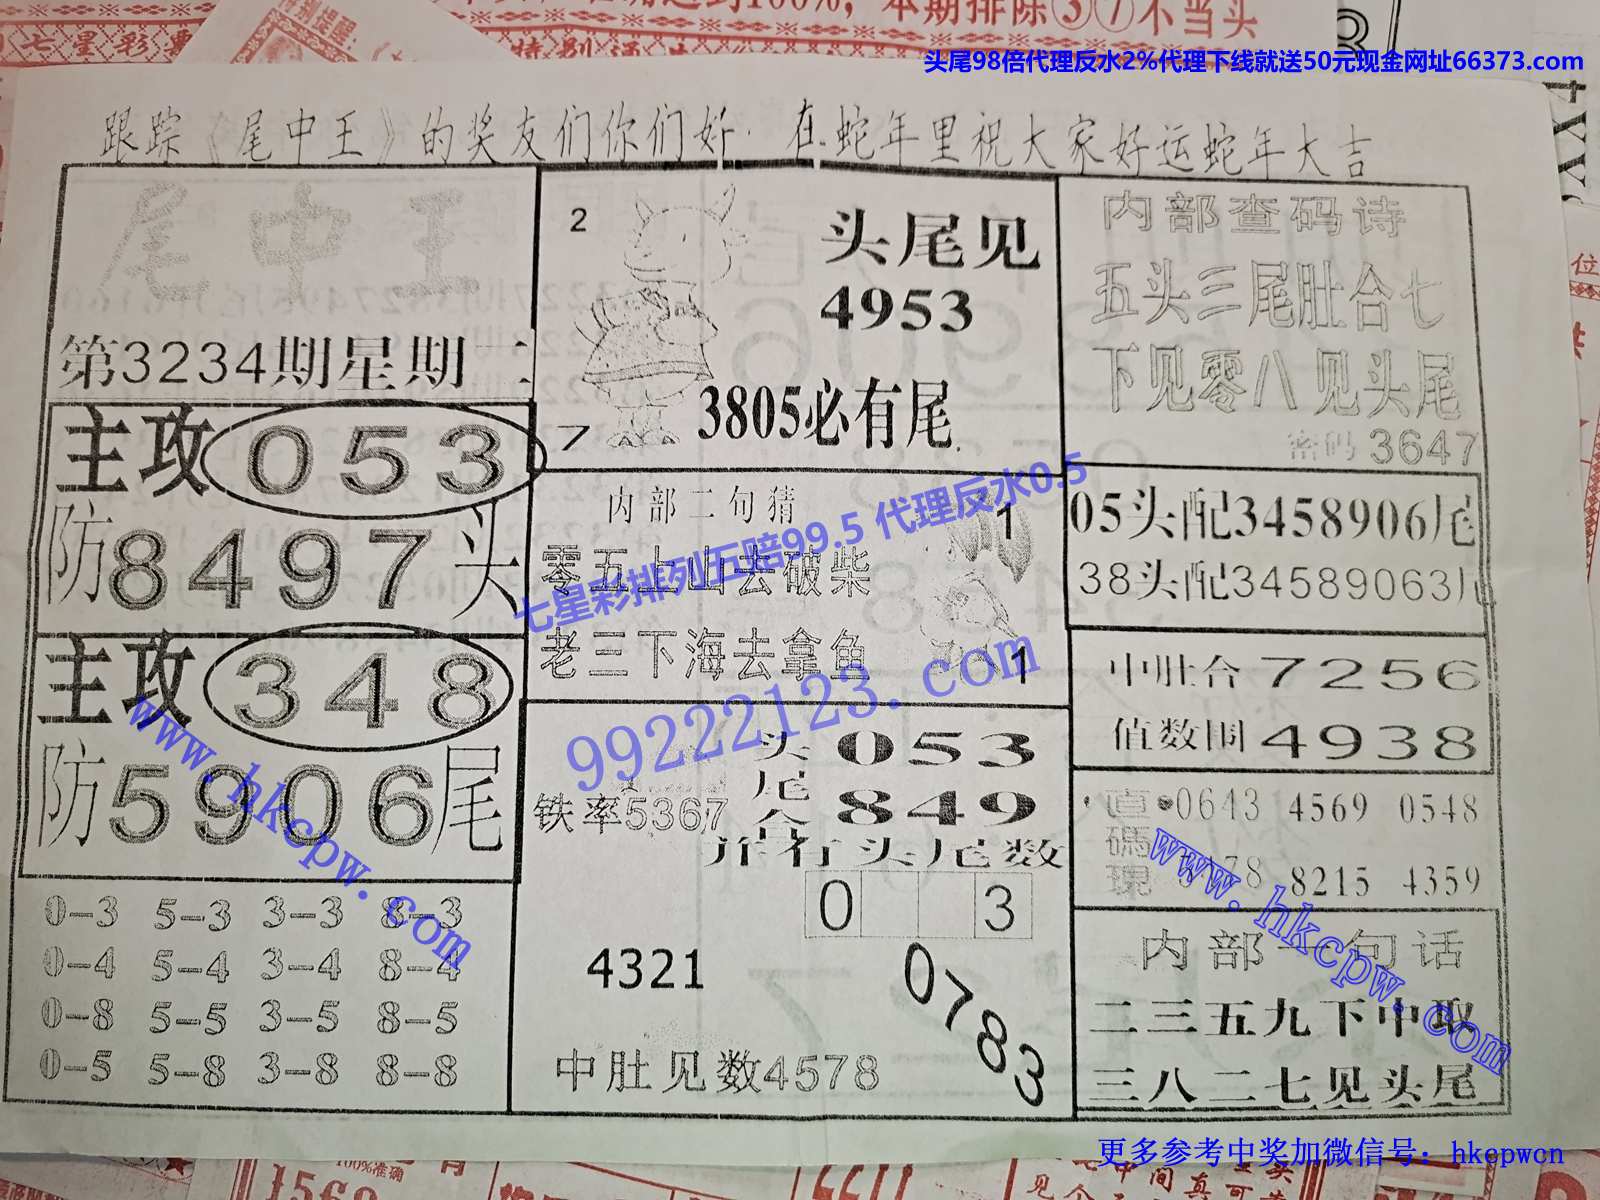 头尾98倍代理反水2%代理下线就送50元现金网址66373.com
跟踪《尾中王》的奖友们你们好·在蛇年里祝大家好运蛇年大吉
尾中王
第3234期星期二
主攻053
防8497头
主攻348
防5906尾
0-3 5-3 3-3 8-3
0-4 5-4 3-4 8-4
0-8 5-5 3-5 8-5
0-5 5-8 3-8 8-8
2
头尾见
4953
3805必有尾
7
内部二句猜
零五上山去破柴
老三下海去拿鱼
1
1
头053
尾
合849
铁率5367
并有头尾数
0 3
4321
0783
中肚见数4578
内部查码诗
五头三尾肚合七
下见零八见头尾
密码3647
05头配3458906尾
38头配34589063尾
中肚合7256
值数围4938
直碼現
0643 4569 0548
8215 4359
内部一句话
二三五九下中取
三八二七见头尾
七星彩排列五赔99.5 代理反水0.5
99222123.com
www.hkcpw.com
www.hkcpw.com
更多参考中奖加微信号：hkcpwcn